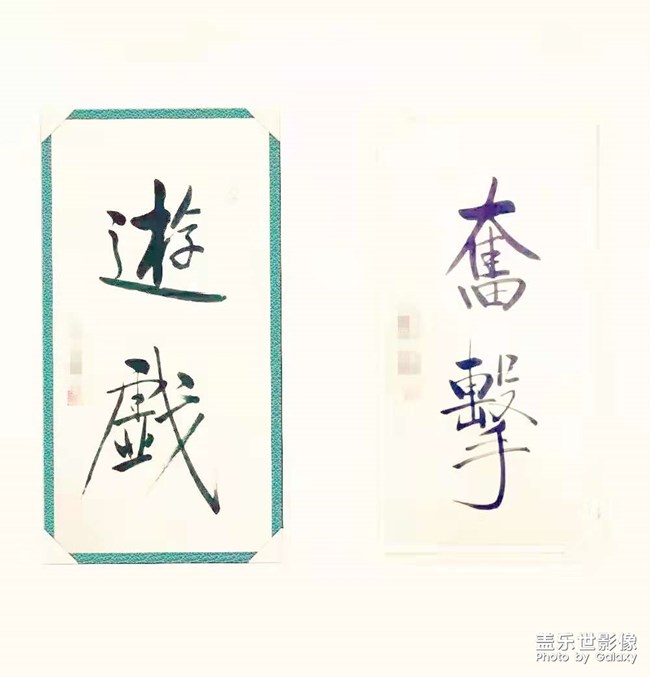 遊戲
奮擊
盖乐世影像
Photo by Galaxy